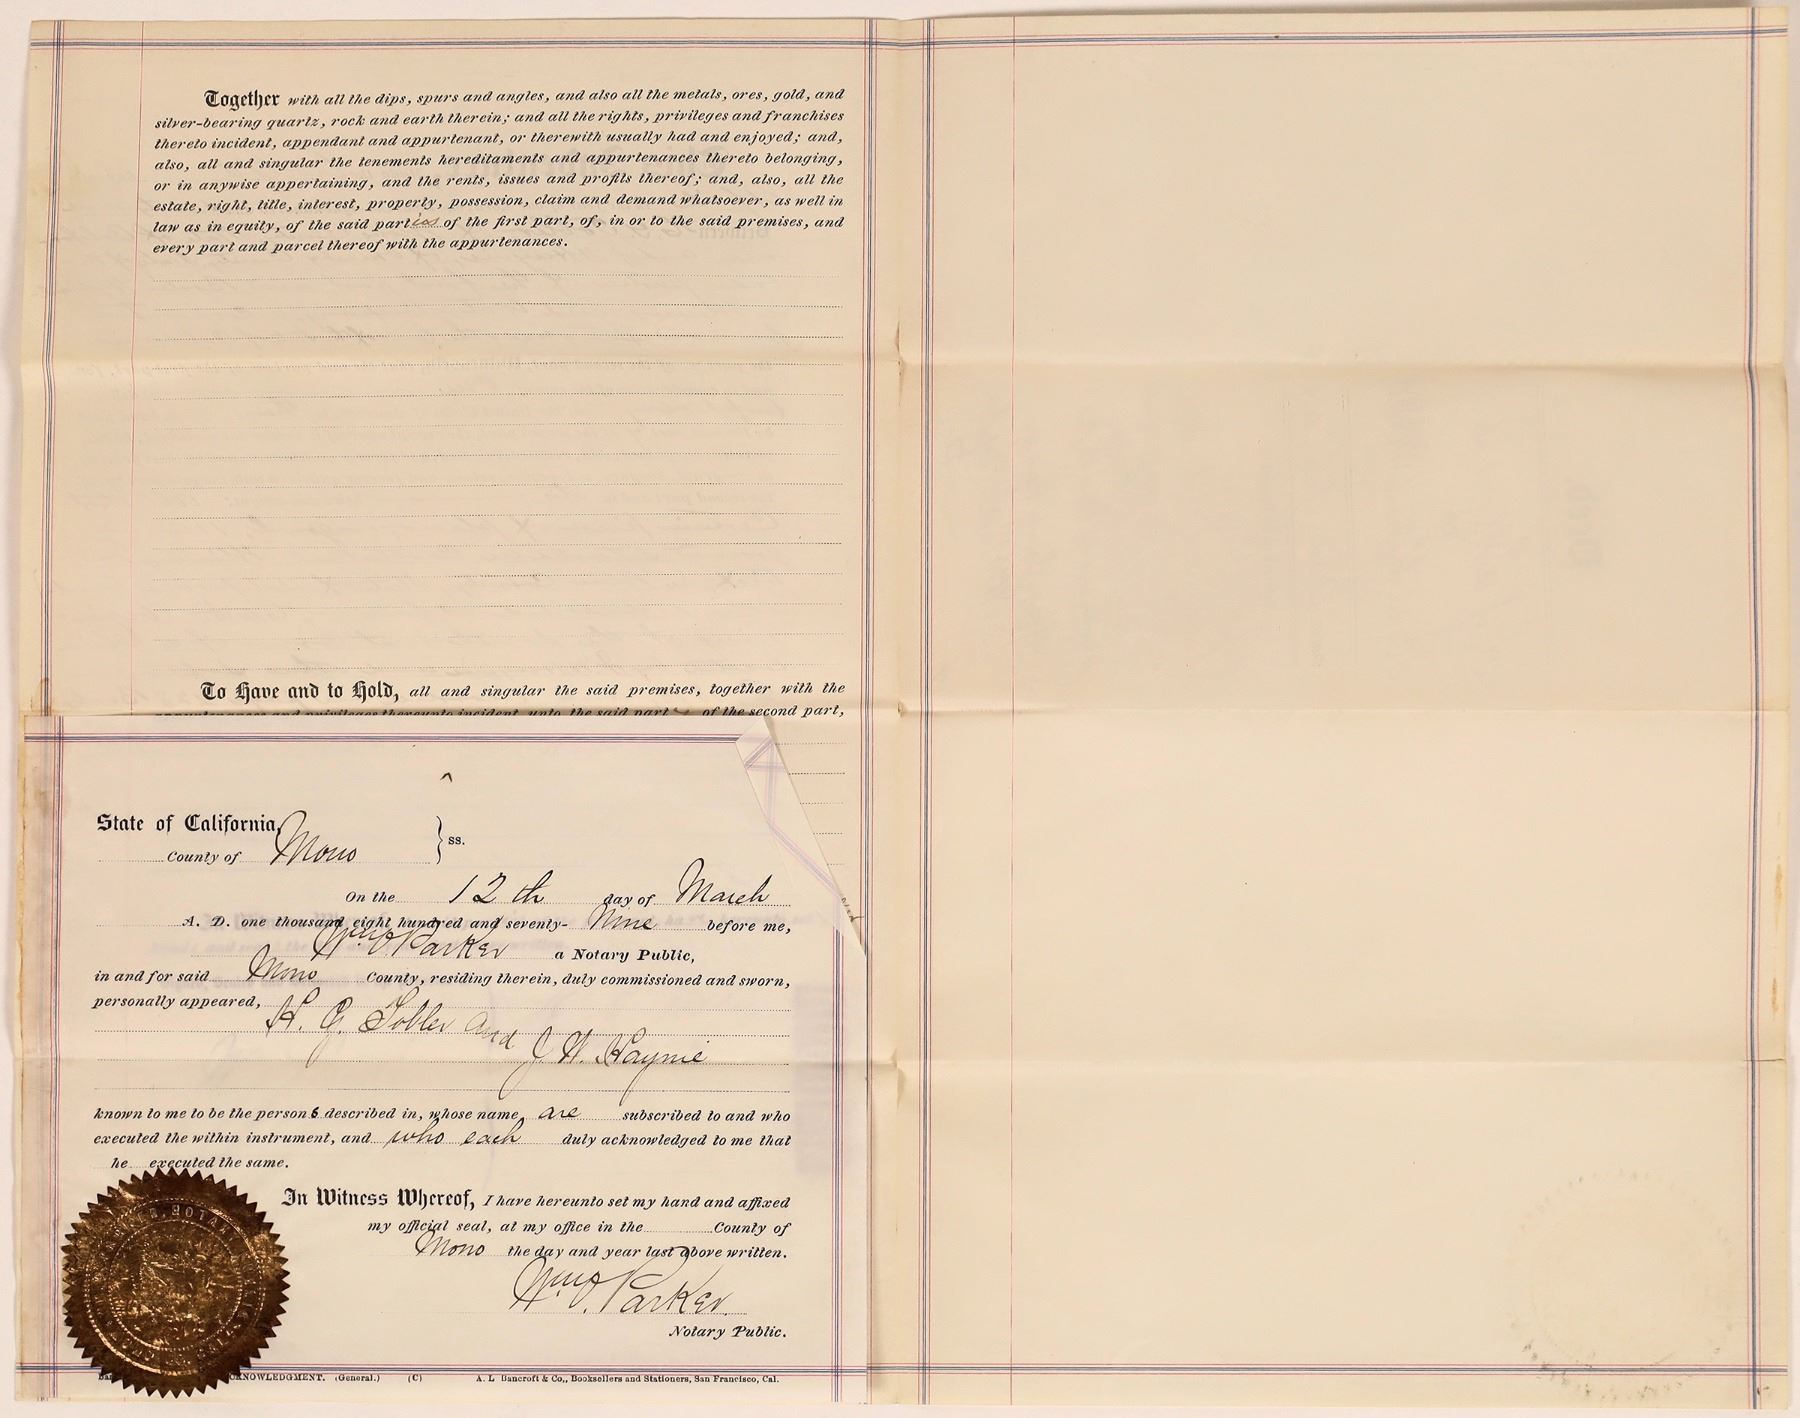 Together with all the dips, spurs and angles, and also all the metals, ores, gold, and
silver-bearing quartz, rock and earth therein; and all the rights, privileges and franchises
thereto incident, appendant and appurtenant, or therewith usually had and enjoyed; and,
also, all and singular the tenements hereditaments and appurtenances thereto belonging,
or in anywise appertaining, and the rents, issues and profits thereof; and, also, all the
estate, right, title, interest, property, possession, claim and demand whatsoever, as well in
law as in equity, of the said parties of the first part, of, in or to the said premises, and
every part and parcel thereof with the appurtenances.
To Have and to Hold, all and singular the said premises, together with the
appurtenances and privileges thereunto incident, unto the said part of the second part,
State of California,
County of Mono } ss.
On the 12th day of March
A. D. one thousand eight hundred and seventy- Nine before me,
Wm. O. Parker a Notary Public,
in and for said Mono County, residing therein, duly commissioned and sworn,
personally appeared,
H. G. Tobler and
J W. Haynie
known to me to be the persons described in, whose name are subscribed to and who
executed the within instrument, and who each duly acknowledged to me that
he executed the same.
In Witness Whereof, I have hereunto set my hand and affixed
my official seal, at my office in the County of
Mono the day and year last above written.
Wm. O. Parker.
Notary Public.
(General.) (C) A. L. Bancroft & Co., Booksellers and Stationers, San Francisco, Cal.